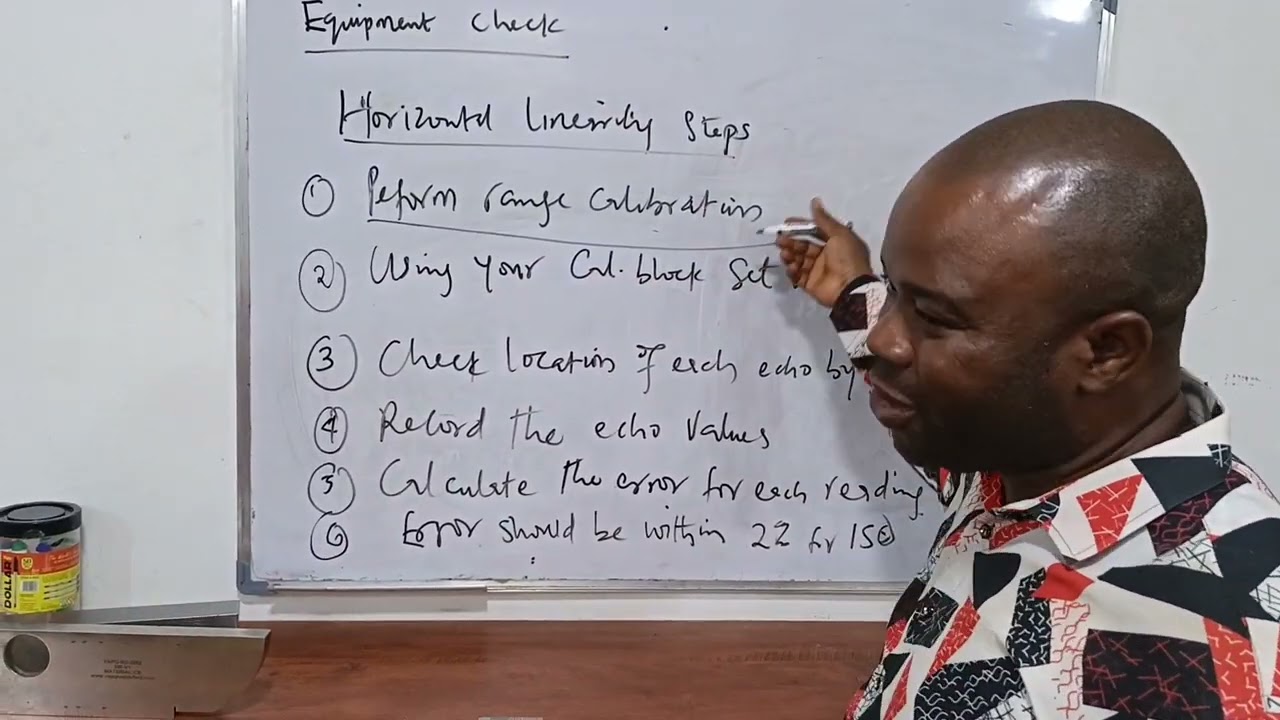 Equipment Check
Horizontal linearity Steps
① Peform range Calibration
② Using your Cal. block Set
③ Check location of each echo by
④ Record the echo values
⑤ Calculate the error for each reading
⑥ Error should be within 2% for ISO
DOLLAR